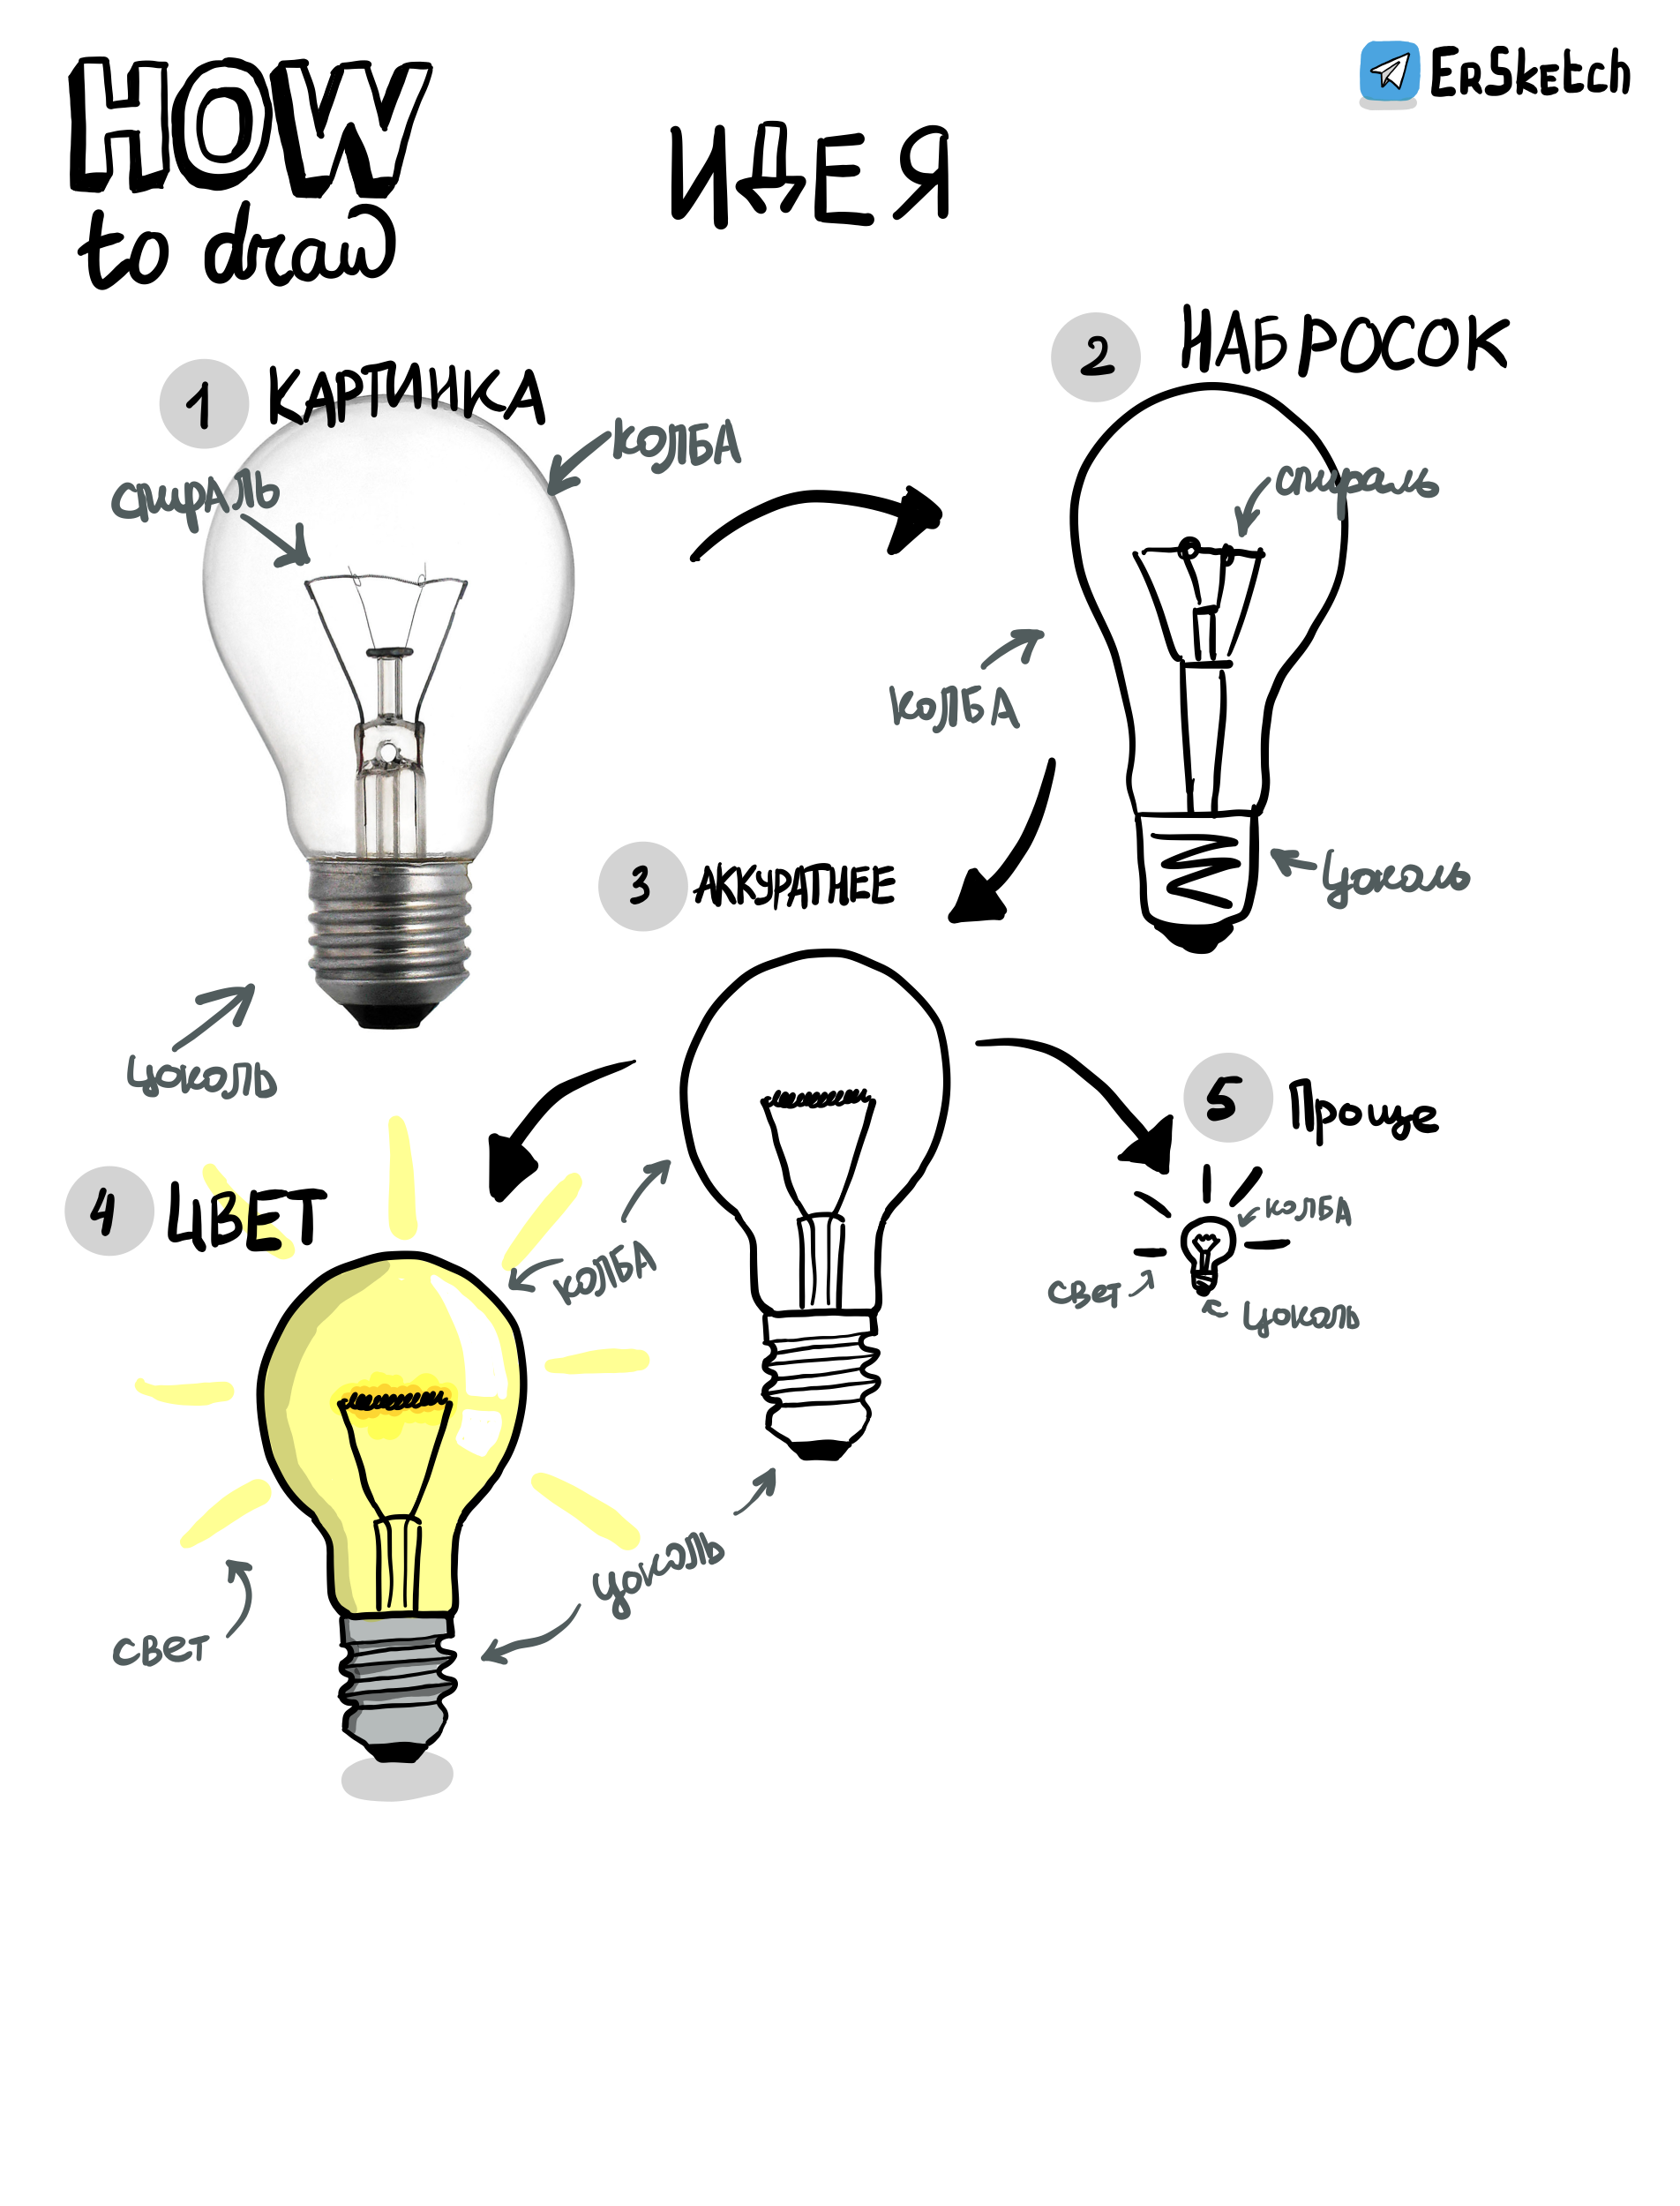 HOW
to draw
ErSketch
ИДЕЯ
1 КАРТИНКА
КОЛБА
СПИРАЛЬ
ЦОКОЛЬ
2 НАБРОСОК
спираль
КОЛБА
Цоколь
3 АККУРАТНЕЕ
КОЛБА
ЦОКОЛЬ
4 ЦВЕТ
СВЕТ
5 Проще
КОЛБА
СВЕТ
ЦОКОЛЬ